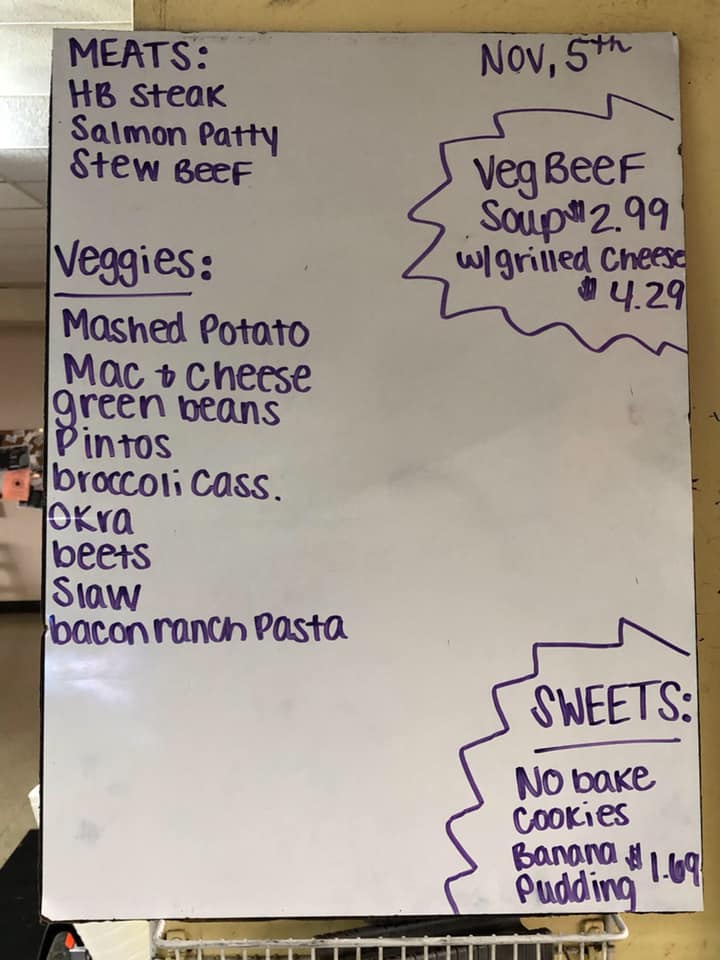 MEATS:
HB Steak
Salmon Patty
Stew Beef
Nov, 5th
Veg Beef
Soup $2.99
w/grilled Cheese
$ 4.29
Veggies:
Mashed Potato
Mac & Cheese
green beans
Pintos
broccoli Cass.
OKra
beets
Slaw
bacon ranch Pasta
SWEETS:
No bake
Cookies
Banana $1.69
Pudding